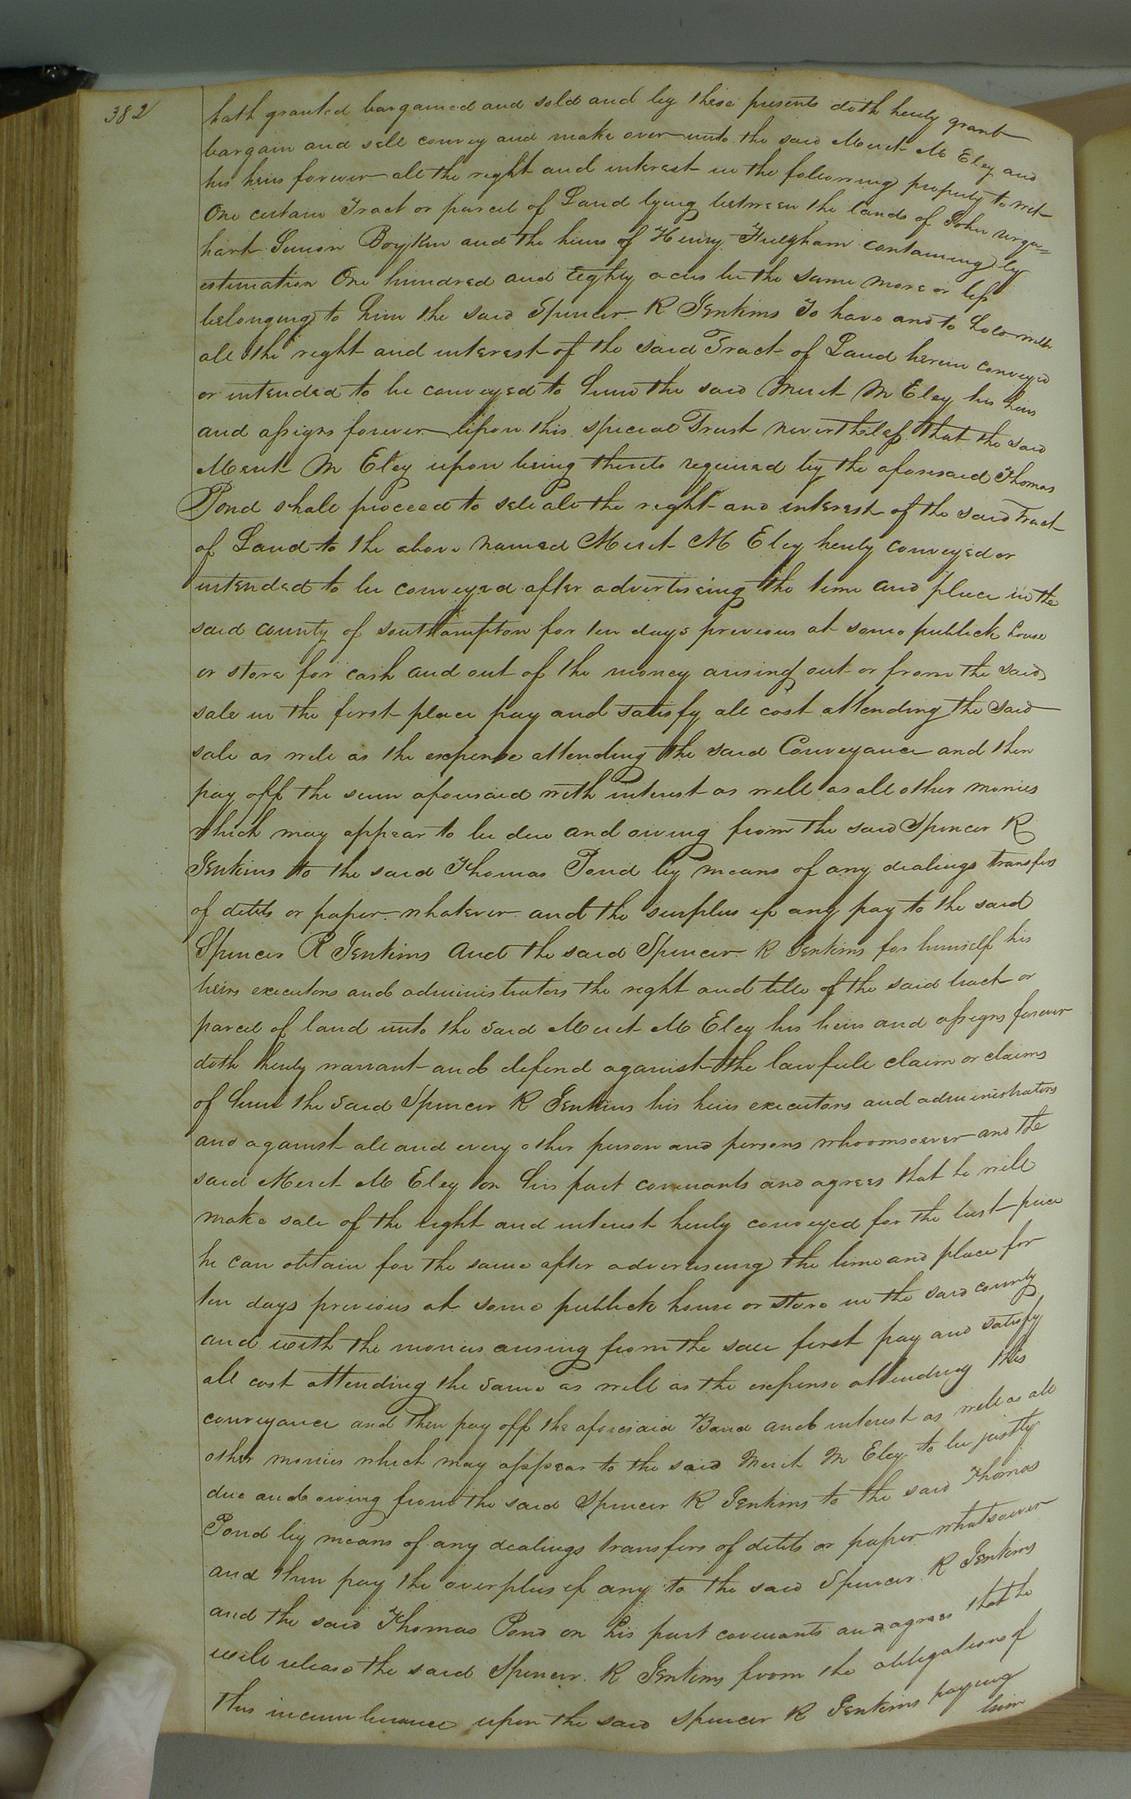 382
hath granted bargained and sold and by these presents doth hereby grant
bargain and sell convey and make over unto the said Merit M Eley and
his heirs forever all the right and interest in the following property to wit
One certain Tract or parcel of Land lying between the lands of John Urqu=
hart Simon Boykin and the heirs of Henry Fulgham containing by
estimation One hundred and Eighty acres be the same more or less
belonging to him the said Spencer R Jenkins To have and to hold
all the right and interest of the said Tract of Land herein conveyed
or intended to be conveyed to him the said Merit M Eley his heirs
and assigns forever Upon this special Trust nevertheless that the said
Merit M Eley upon being thereto required by the aforesaid Thomas
Pond shall proceed to sell all the right and interest of the said Tract
of Land to the above named Merit M Eley hereby conveyed or
intended to be conveyed after advertising the time and place in the
said county of Southampton for ten days previous at some publick house
or store for cash and out of the money arising out or from the said
sale in the first place pay and satisfy all cost attending the said
sale as well as the expense attending the said Conveyance and then
pay off the sum aforesaid with interest as well as all other monies
which may appear to be due and owing from the said Spencer R
Jenkins to the said Thomas Pond by means of any dealings transfers
of debts or paper whatever and the surplus if any pay to the said
Spencer R Jenkins And the said Spencer R Jenkins for himself his
heirs executors and administrators the right and title of the said tract or
parcel of land unto the said Merit M Eley his heirs and assigns forever
doth hereby warrant and defend against the lawfull claim or claims
of him the said Spencer R Jenkins his heirs executors and administrators
and against all and every other person and persons whoomsoever and the
said Merit M Eley on his part covenants and agrees that he will
make sale of the right and interest hereby conveyed for the best price
he can obtain for the same after advertising the time and place for
ten days previous at some publick house or store in the said county
and with the monies arising from the sale first pay and satisfy
all cost attending the same as well as the expense attending this
conveyance and then pay off the aforesaid Bond and interest as well as all
other monies which may appear to the said Merit M Eley to be justly
due and owing from the said Spencer R Jenkins to the said Thomas
Pond by means of any dealings transfers of debts or paper whatsoever
and then pay the overplus if any to the said Spencer R Jenkins
and the said Thomas Pond on his part covenants and agrees that he
will release the said Spencer R Jenkins from the obligation of
this incumberance upon the said Spencer R Jenkins paying
him